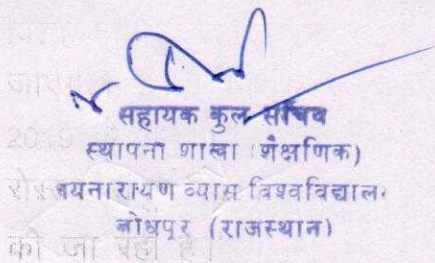 सहायक कुल सचिव
स्थापना शाखा (शैक्षणिक)
जयनारायण व्यास विश्वविद्यालय
जोधपुर (राजस्थान)
की जा रही है।